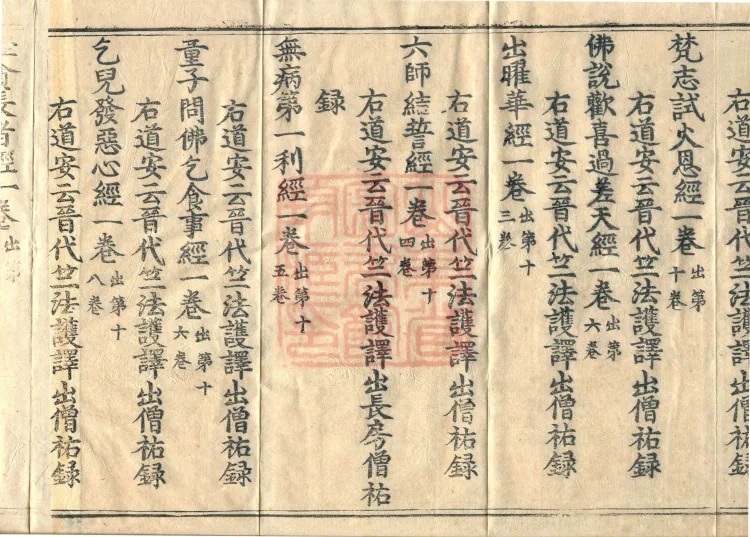 右道安云晉代竺法護譯出僧祐録
梵志試火恩經一卷出第十卷
右道安云晉代竺法護譯出僧祐録
佛說歡喜過差天經一卷出第六卷
右道安云晉代竺法護譯出僧祐録
出曜華經一卷出第十三卷
右道安云晉代竺法護譯出僧祐録
六師結誓經一卷出第十四卷
右道安云晉代竺法護譯出長房僧祐
録
無病第一利經一卷出第十五卷
右道安云晉代竺法護譯出僧祐録
童子問佛乞食事經一卷出第十六卷
右道安云晉代竺法護譯出僧祐録
乞兒發惡心經一卷出第十八卷
右道安云晉代竺法護譯出僧祐録
長者經一卷出第